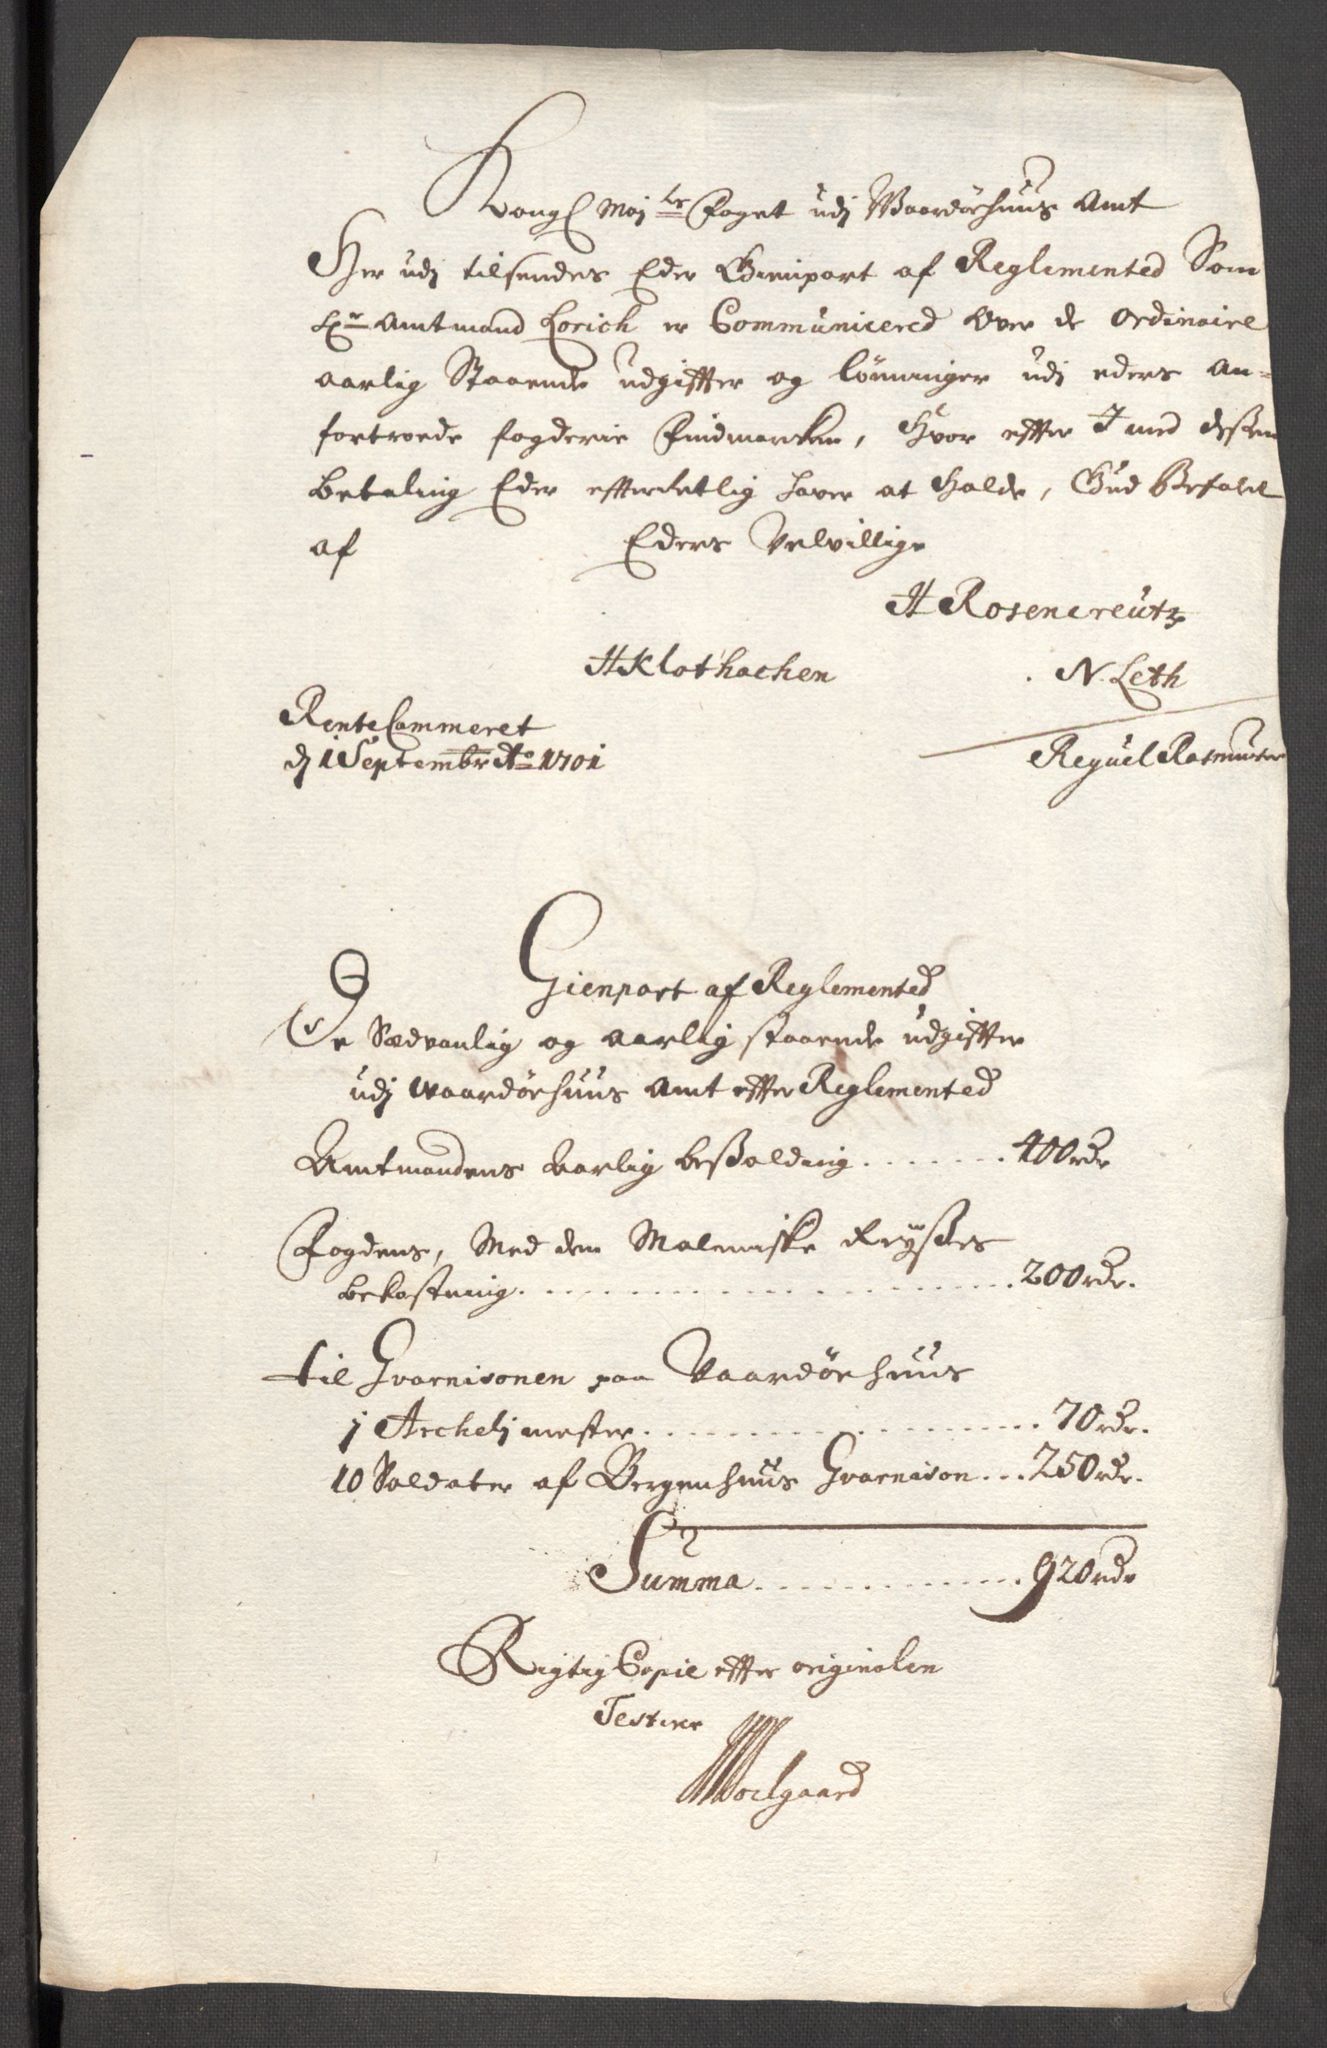 Kongl Maj.ts Foget udj Waardøehuus Amt
Her udj tilsendes Eder Gienpart af Reglemented Som
Hr Amtmand Lorich er Communicered Over de Ordinaire
aarlig Staaende udgiffter og lønninger udi eders an-
fortroede fogderie Findmarken, Hvor effter I med dessen
betaling Eder effterretlig haver at Holde, Gud Befalet
af Eders Velvillige
H Rosencreutz
H Klothachen N. Leth
RenteCammeret
dj 1 Septembr Ao 1701
Reguel Rasmuser
Gienpart af Reglemented
De Sædvanlig og aarlig staaende udgiffter
udj Waardøehuus Amt effter Reglemented
Amtmandens Aarlig beßolding ....... 400 rdr
Fogdens, Med den Malmiske Reyßes
bekostning ................... 200 rdr.
til Gvarnisonen paa Vaardøehuus
1 Archelj mester ................. 70 rdr.
10 Soldater af Bergenhuus Gvarnison ... 250 rdr.
Summa ............ 920 rdr
Rigtig Copie effter originalen
Testerer
Moelgaard